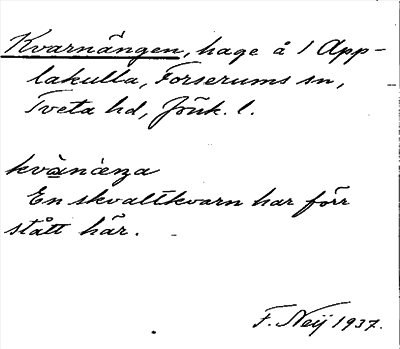 Kvarnängen, hage å 1 App-
lakulla, Forserums sn,
Tveta hd, Jönk. l.
kvànàŋa
En skvaltkvarn har förr
stått här.
F. Neij 1937.